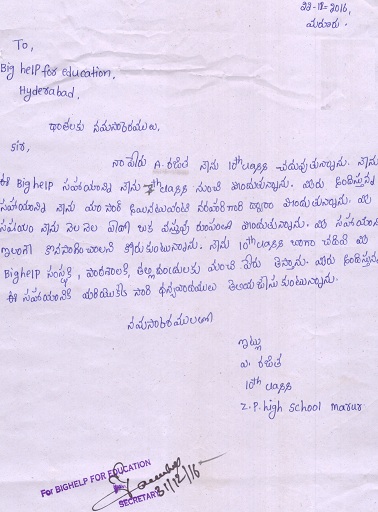 22-12-2016,
మరూరు.
To,
Big help for education,
Hyderabad.
దాతలకు నమస్కారములు.
Sir,
నా పేరు A. రజిత నేను 10th class చదువుతున్నాను. నేను
ఈ Big help సహాయాన్ని నేను 7th class నుంచి పొందుతున్నాను. మీరు పంపిస్తున్న
సహాయాన్ని నేను మా సార్ ద్వారా పొందుతున్నాను. ఈ
సహాయం నేను నెల నెల ఏదో ఒక వస్తువు రూపంలో పొందుతున్నాను. ఈ సహాయం
ఇలాగే కొనసాగించాలని కోరుకుంటున్నాను. నేను 10th class బాగా చదివి ఈ
Big help సంస్థకి, పాఠశాలకి, తల్లిదండ్రులకు మంచి పేరు తెస్తాను. మీరు పంపిస్తున్న
ఈ సహాయానికి మరియొకసారి ధన్యవాదములు తెలియచేసుకుంటున్నాను.
నమస్కారములతో
ఇట్లు
ఎ. రజిత
10th class
Z.P. high school marur
For BIGHELP FOR EDUCATION
SECRETARY
31/12/16